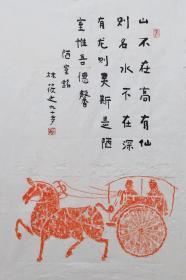 山不在高有仙
则名水不在深
有龙则灵斯是陋
室惟吾德馨
陋室铭
林筱之九十岁